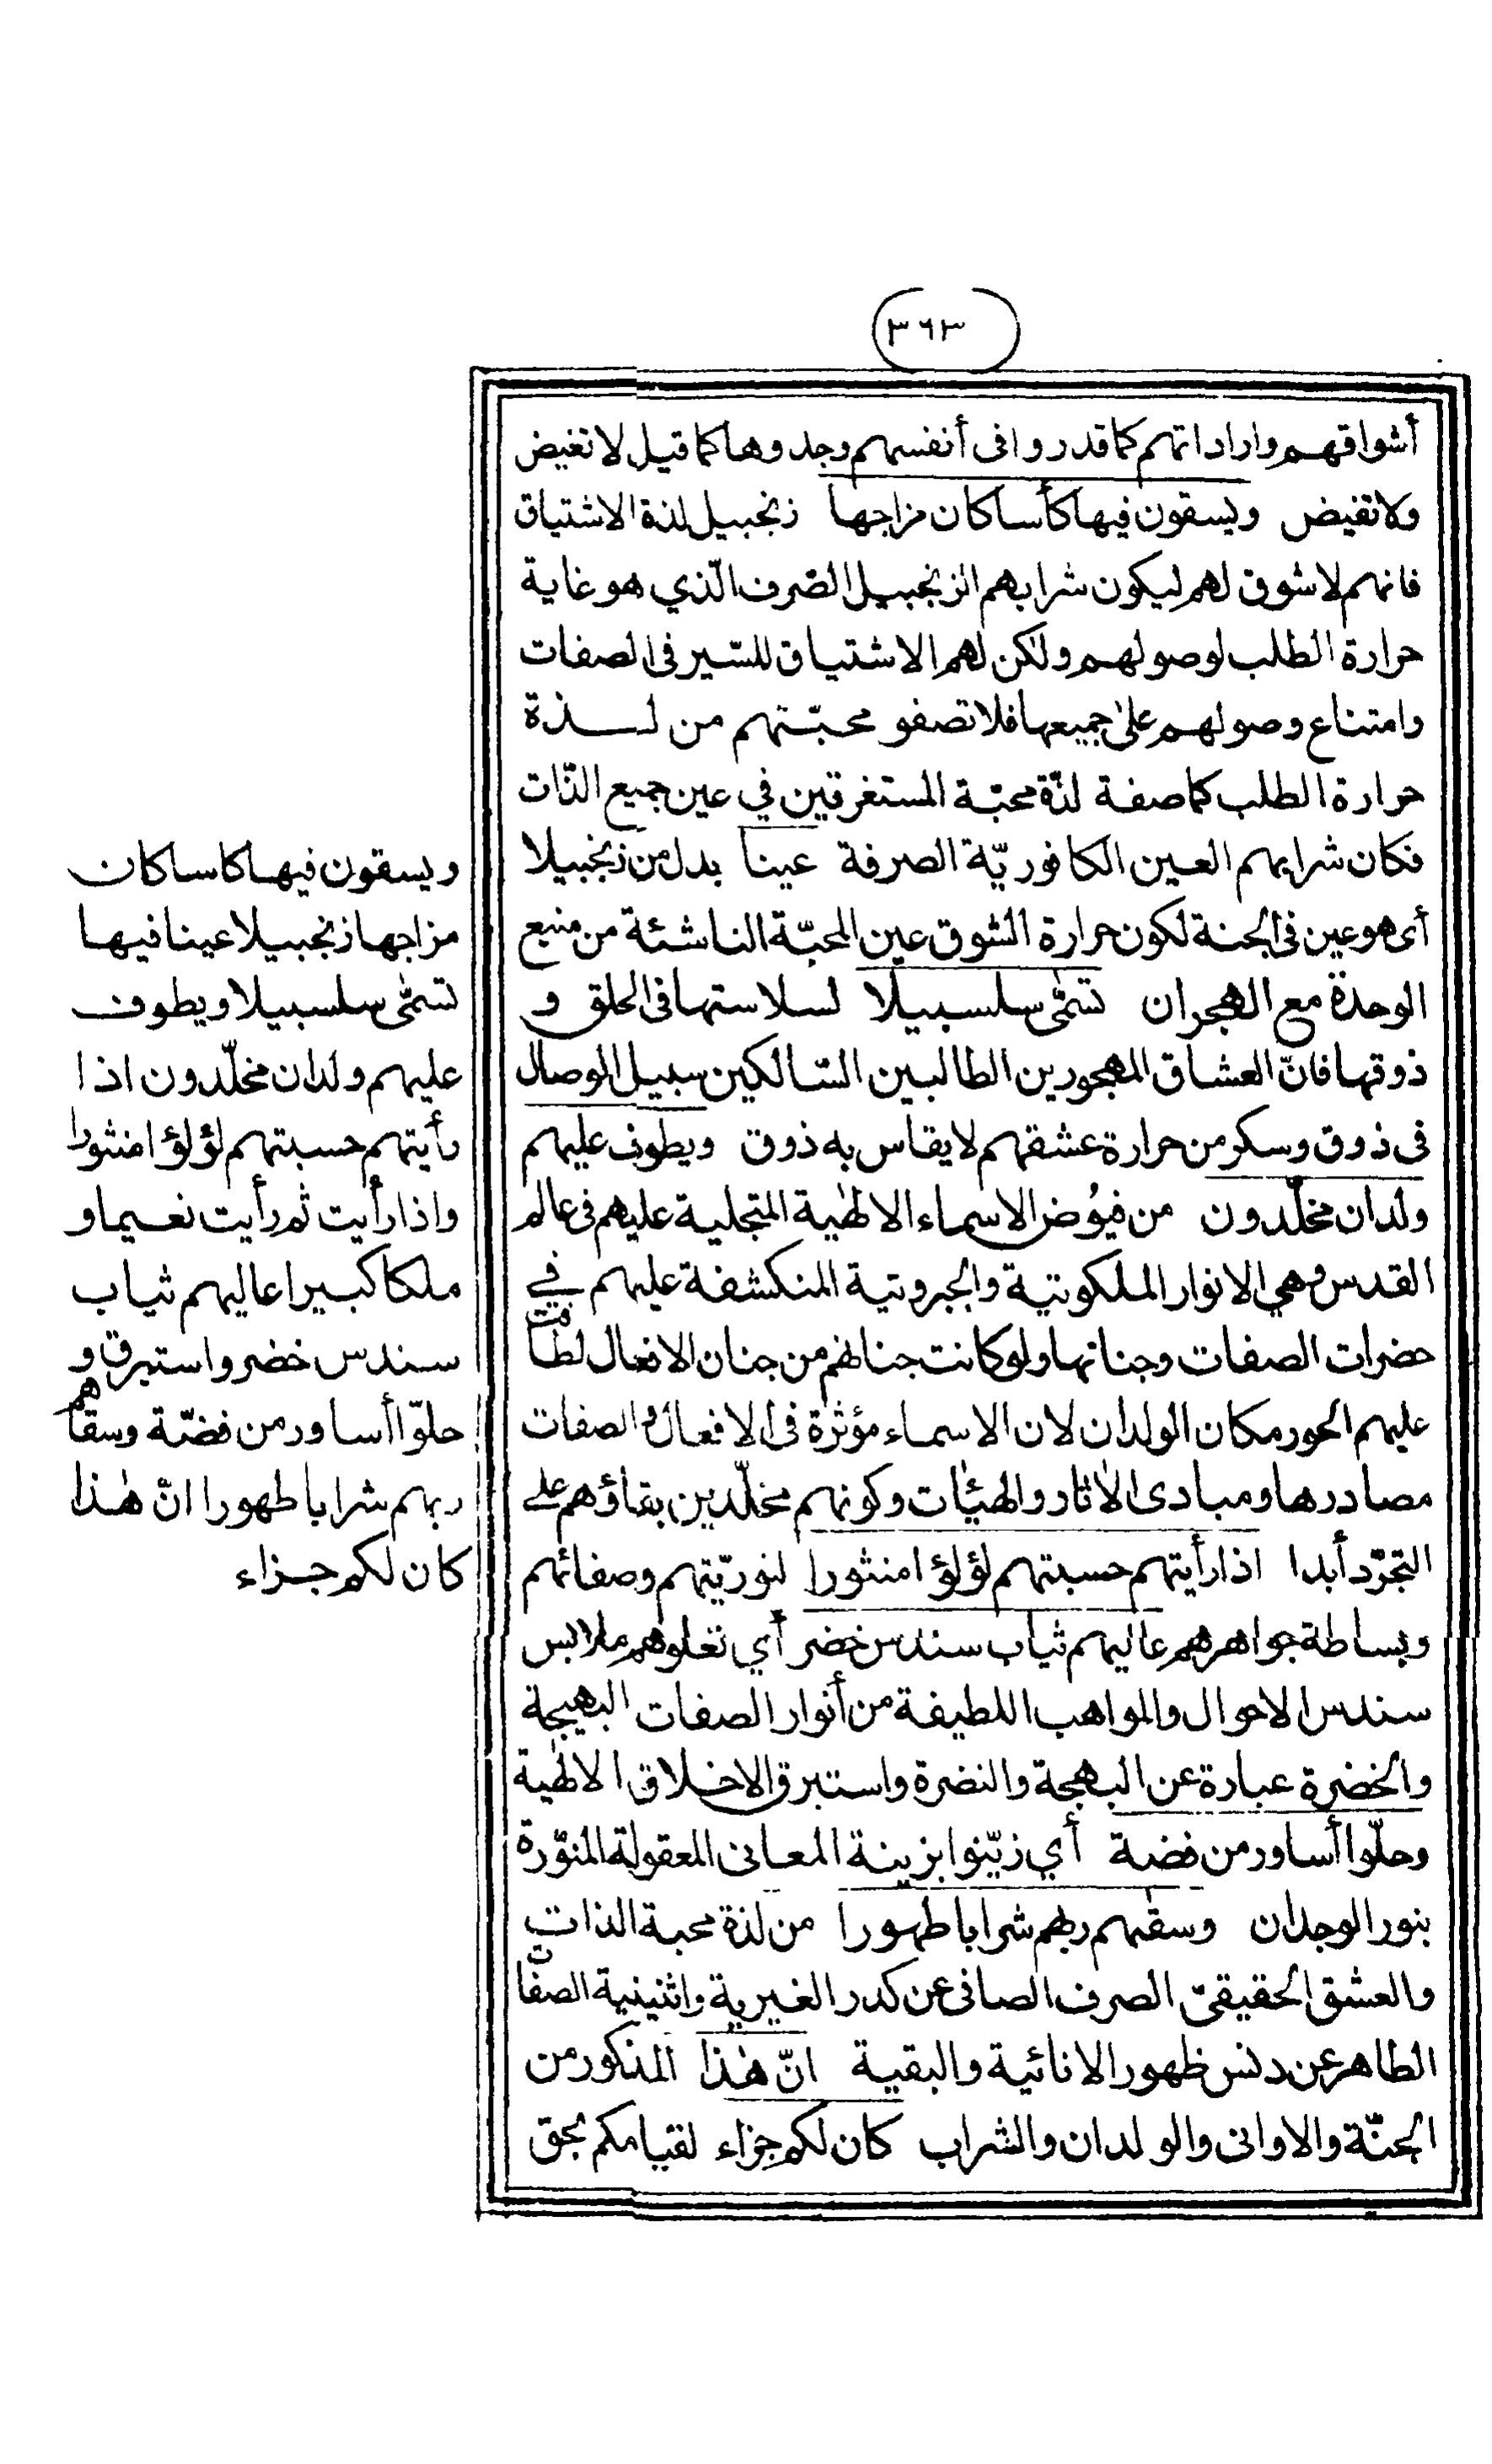 ٣٦٣
أشواقهم واراداتهم كما قدروا فى أنفسهم وجدوها كما قيل لا تغيض
ولا تفيض ويسقون فيها كأسا كان مزاجها زنجبيل لذة الاشتياق
فانهم لا شوق لهم ليكون شرابهم الزنجبيل الصّرف الّذي هو غاية
حرارة الطلب لوصولهم ولكن لهم الاشتياق للسّير فى الصفات
وامتناع وصولهم على جميعها فلا تصفو محبّتهم من لذة
حرارة الطلب كما صفة لذّة محبّة المستغرقين في عين جميع الذّات
فكان شرابهم العين الكافوريّة الصرفة عينا بدل من زنجبيلا
أى هو عين فى الجنة لكون حرارة الشوق عين المحبّة الناشئة من منبع
الوحدة مع الهجران تسمّٰى سلسبيلا لسلاستها فى الحلق و
ذوقها فانّ العشاق المهجورين الطالبين السّالكين سبيل الوصال
فى ذوق وسكر من حرارة عشقهم لا يقاس به ذوق ويطوف عليهم
ولدان مخلّدون من فيوُض الاسماء الالهٰية المتجلية عليهم فى عالم
القدس وهي الانوار الملكوتية والجبروتية المنكشفة عليهم في
حضرات الصفات وجناتها ولو كانت جناتهم من جنان الافعال لطافت
عليهم الحور مكان الولدان لان الاسماء مؤثرة فى الافعال والصفات
مصادرها ومبادى الاٰثار والهيٰات وكونهم مخلّدين بقاؤهم على
التجرّد أبدا اذا رأيتهم حسبتهم لؤلؤا منثورا لنوريّتهم وصفائهم
وبساطة جواهرهم عاليهم ثياب سندس خضر أي تعلوهم ملابس
سندس الاحوال والمواهب اللطيفة من أنوار الصفات البهيجة
والخضرة عبارة عن البهجة والنضرة واستبرق الاخلاق الالهٰية
وحلّوا أساور من فضة أي زيّنوا بزينة المعانى المعقولة المنوّرة
بنور الوجدان وسقٰهم ربهم شرابا طهورا من لذة محبة الذات
والعشق الحقيقىّ الصرف الصافى عن كدر الغيرية واثنينية الصفات
الطاهر عن دنس ظهور الانائية والبقية انّ هٰذا المذكور من
الجنّة والاوانى والولدان والشراب كان لكم جزاء لقيامكم بحق
ويسقون فيها كاسا كان
مزاجها زنجبيلا عينا فيها
تسمّٰى سلسبيلا ويطوف
عليهم ولدان مخلّدون اذا
رأيتهم حسبتهم لؤلؤا منثورا
واذا رأيت ثم رأيت نعيما و
ملكا كبيرا عاليهم ثياب
سندس خضر واستبرق و
حلوّا أساور من فضّة وسقاهم
ربهم شرابا طهورا انّ هٰذا
كان لكم جزاء